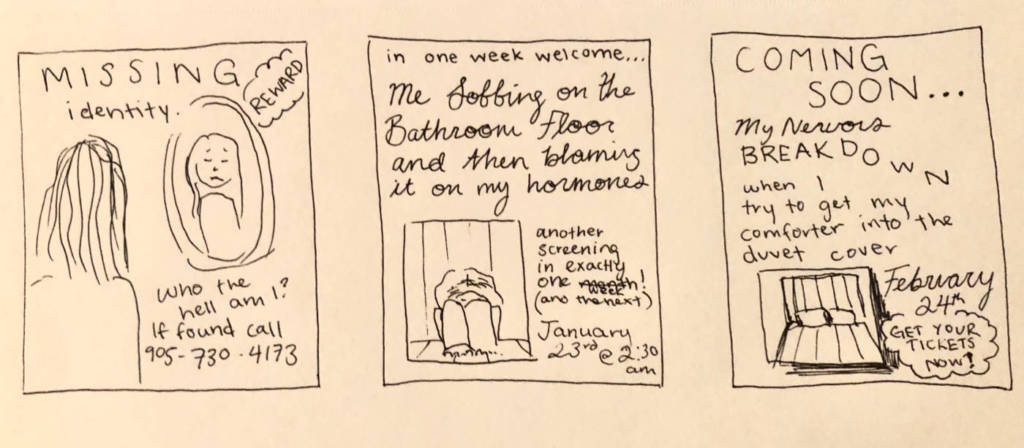 MISSING
identity.
REWARD
who the
hell am I?
If found call
905-730-4173
in one week welcome...
Me Sobbing on the
Bathroom Floor
and then blaming
it on my hormones
another
screening
in exactly
one month!
week
(and the next)
January
23rd @ 2:30
am
COMING
SOON...
My Nervous
BREAKDOWN
when I
try to get my
comforter into the
duvet cover
February
24th
GET YOUR
TICKETS
NOW!